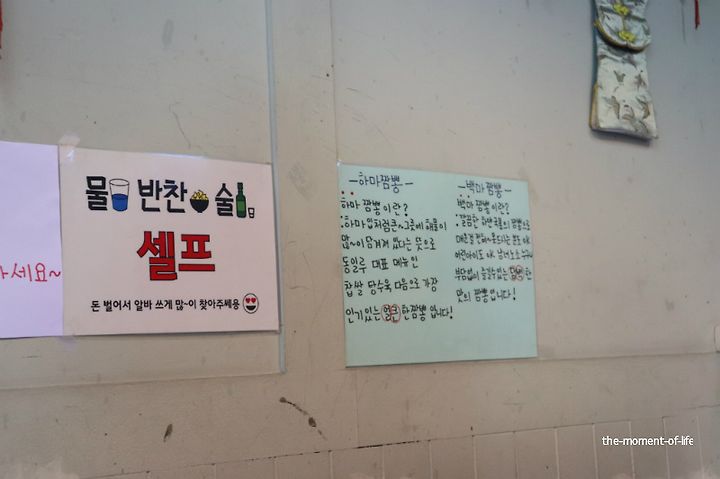 가세요~
물 반찬 술
셀프
돈 벌어서 알바 쓰게 많~이 찾아주쎄용
-하마짬뽕-
하마 짬뽕 이란?
하마 입처럼 큰~ 그릇에 해물이
많~이 담겨져 있다는 뜻으로
동일루 대표 메뉴인
찹쌀 탕수육 다음으로 가장
인기있는 얼큰한 짬뽕 입니다!
-백마짬뽕-
백마 짬뽕 이란?
깔끔한 하얀국물의 짬뽕으로
어린아이도 OK 남녀노소 누구나
부담없이 즐길수 있는 담백한
맛의 짬뽕입니다!
the-moment-of-life